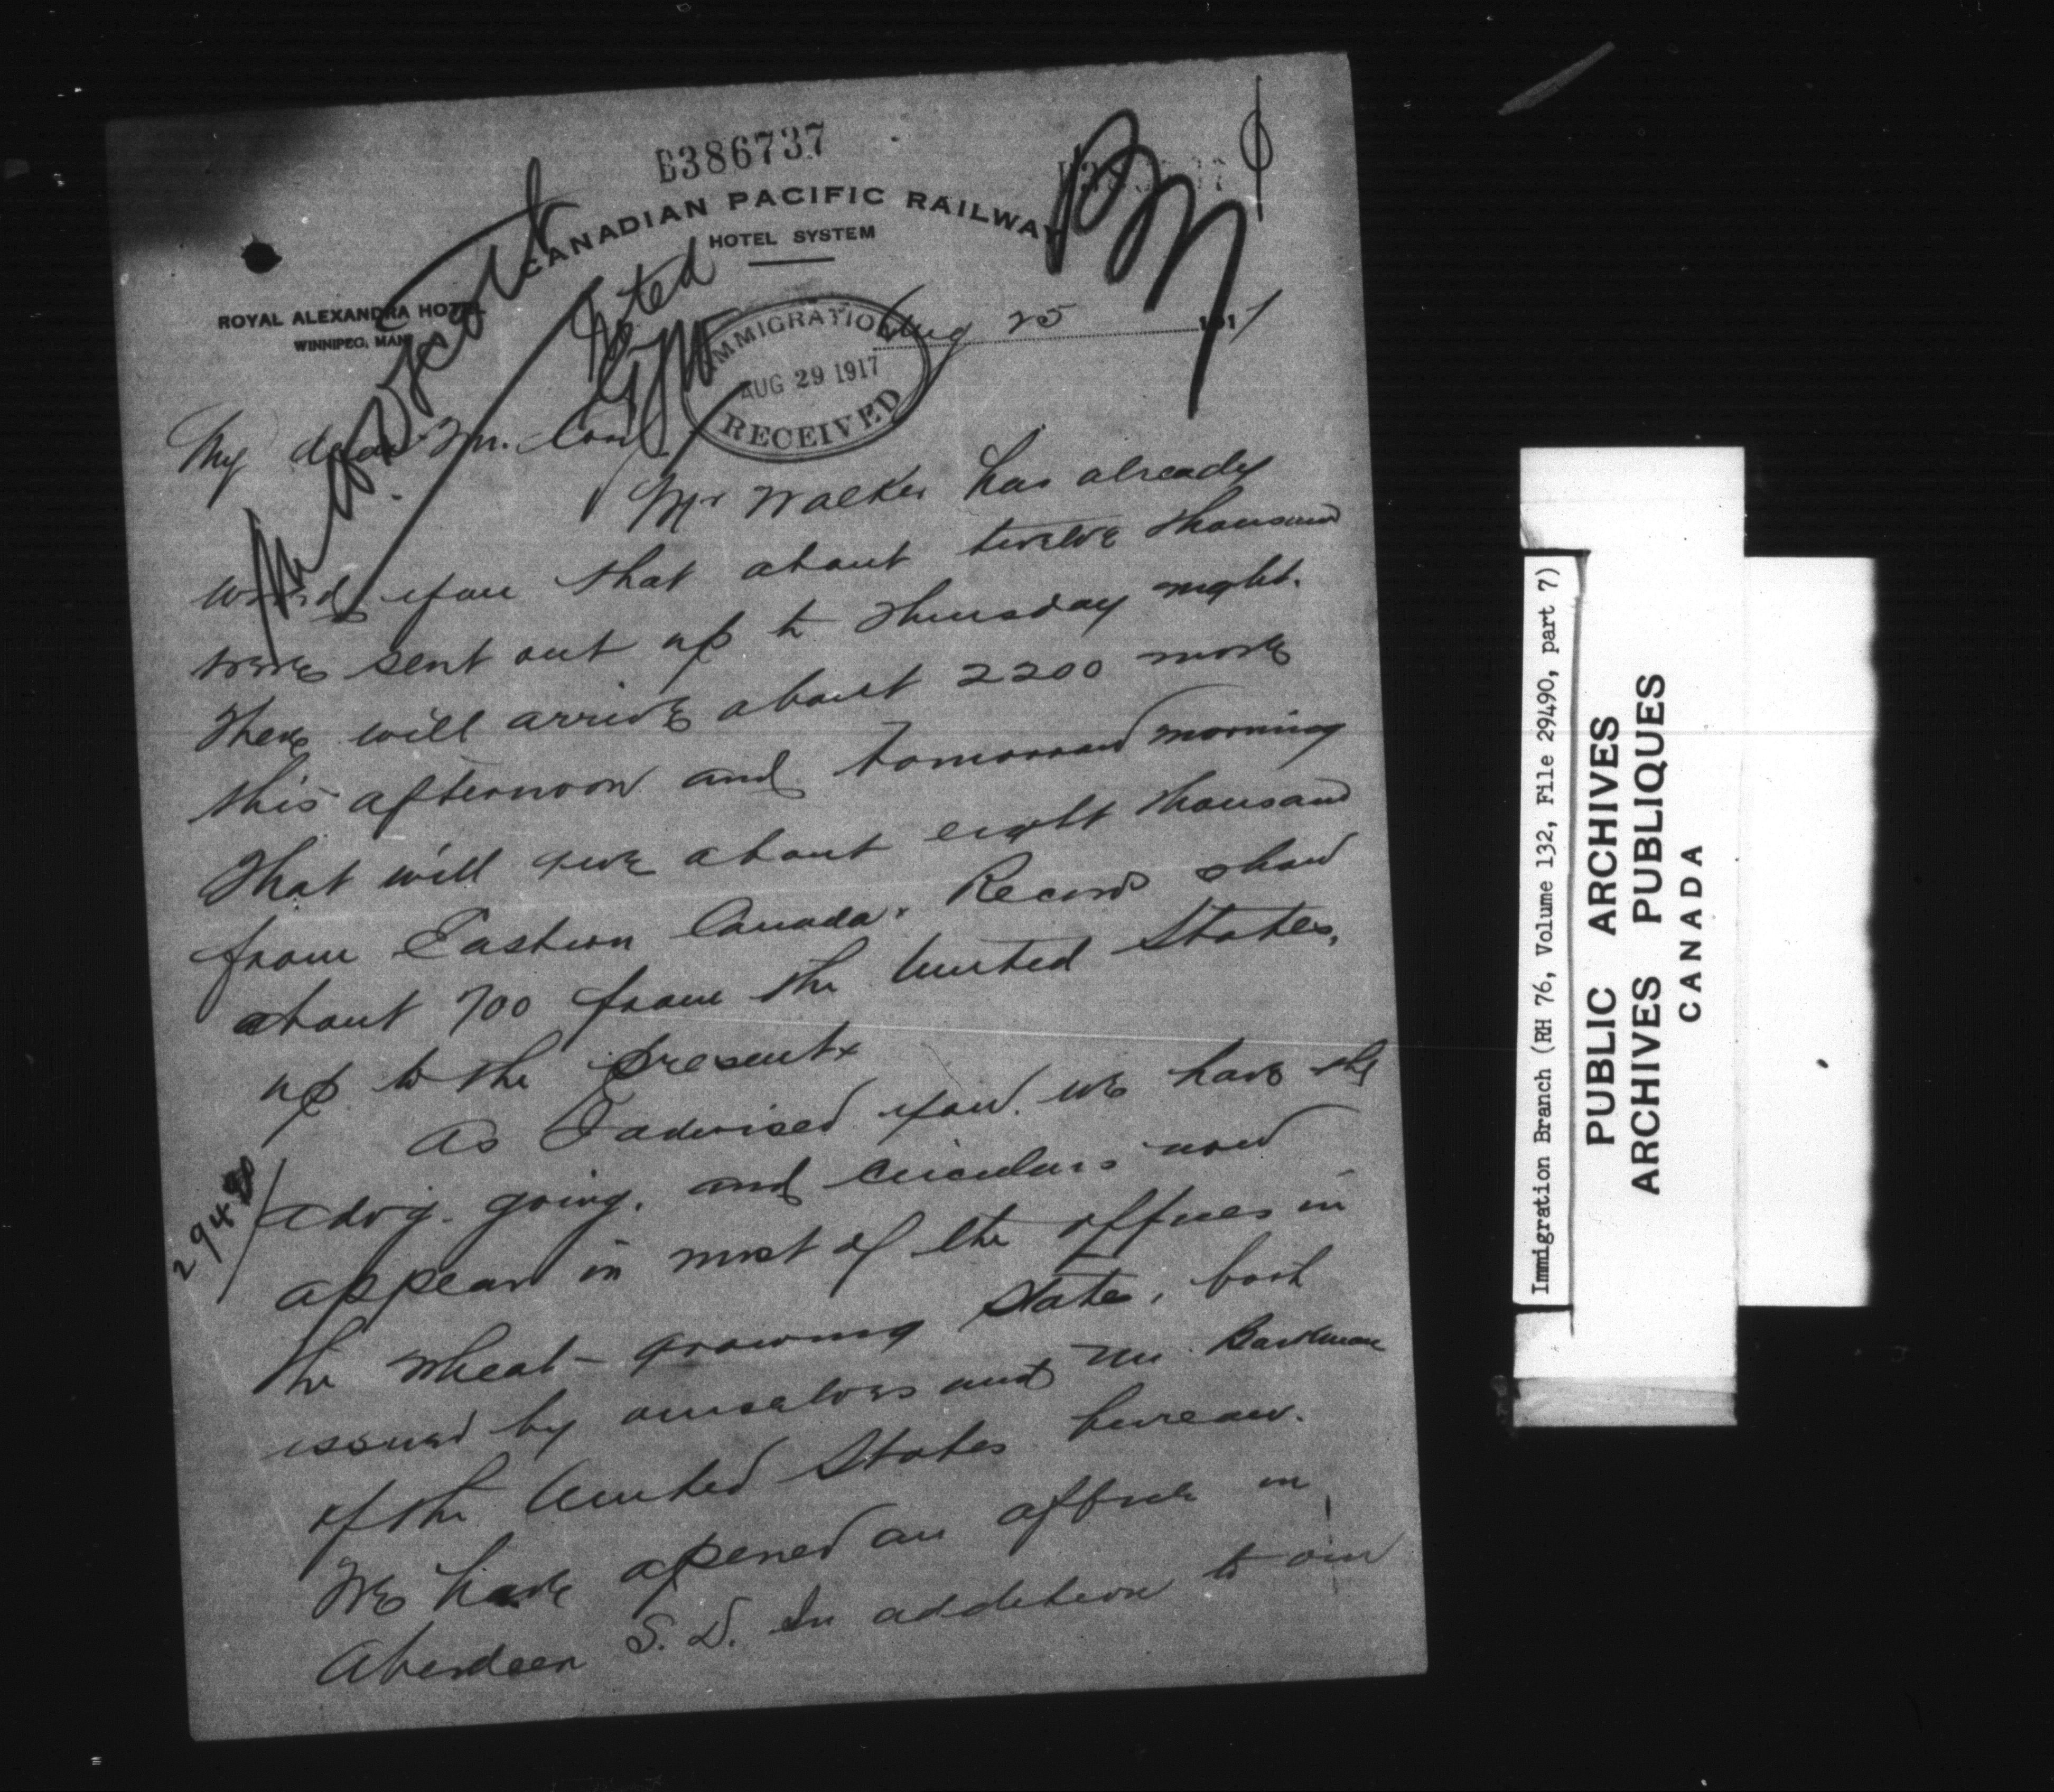 E386737
CANADIAN PACIFIC RAILWAY
HOTEL SYSTEM
ROYAL ALEXANDRA HOTEL
WINNIPEG, MAN.
Aug 25 1917
IMMIGRATION
AUG 29 1917
RECEIVED
Noted
My dear Mr.
Mr Walker has already
wired you that about twelve thousand
were sent out up to Thursday night.
There will arrive about 2200 more
this afternoon and tomorrow morning
That will give about eight thousand
from Eastern Canada. Records show
about 700 from the United States,
up to the present.
As I advised you we have the
advg. going, and circulars now
appear in most of the offices in
the wheat-growing states, both
issued by ourselves and Mr.
of the United States bureau.
We have opened an office in
Aberdeen S.D. In addition to our
Immigration Branch (RH 76, Volume 132, File 29490, part 7)
PUBLIC ARCHIVES
ARCHIVES PUBLIQUES
CANADA